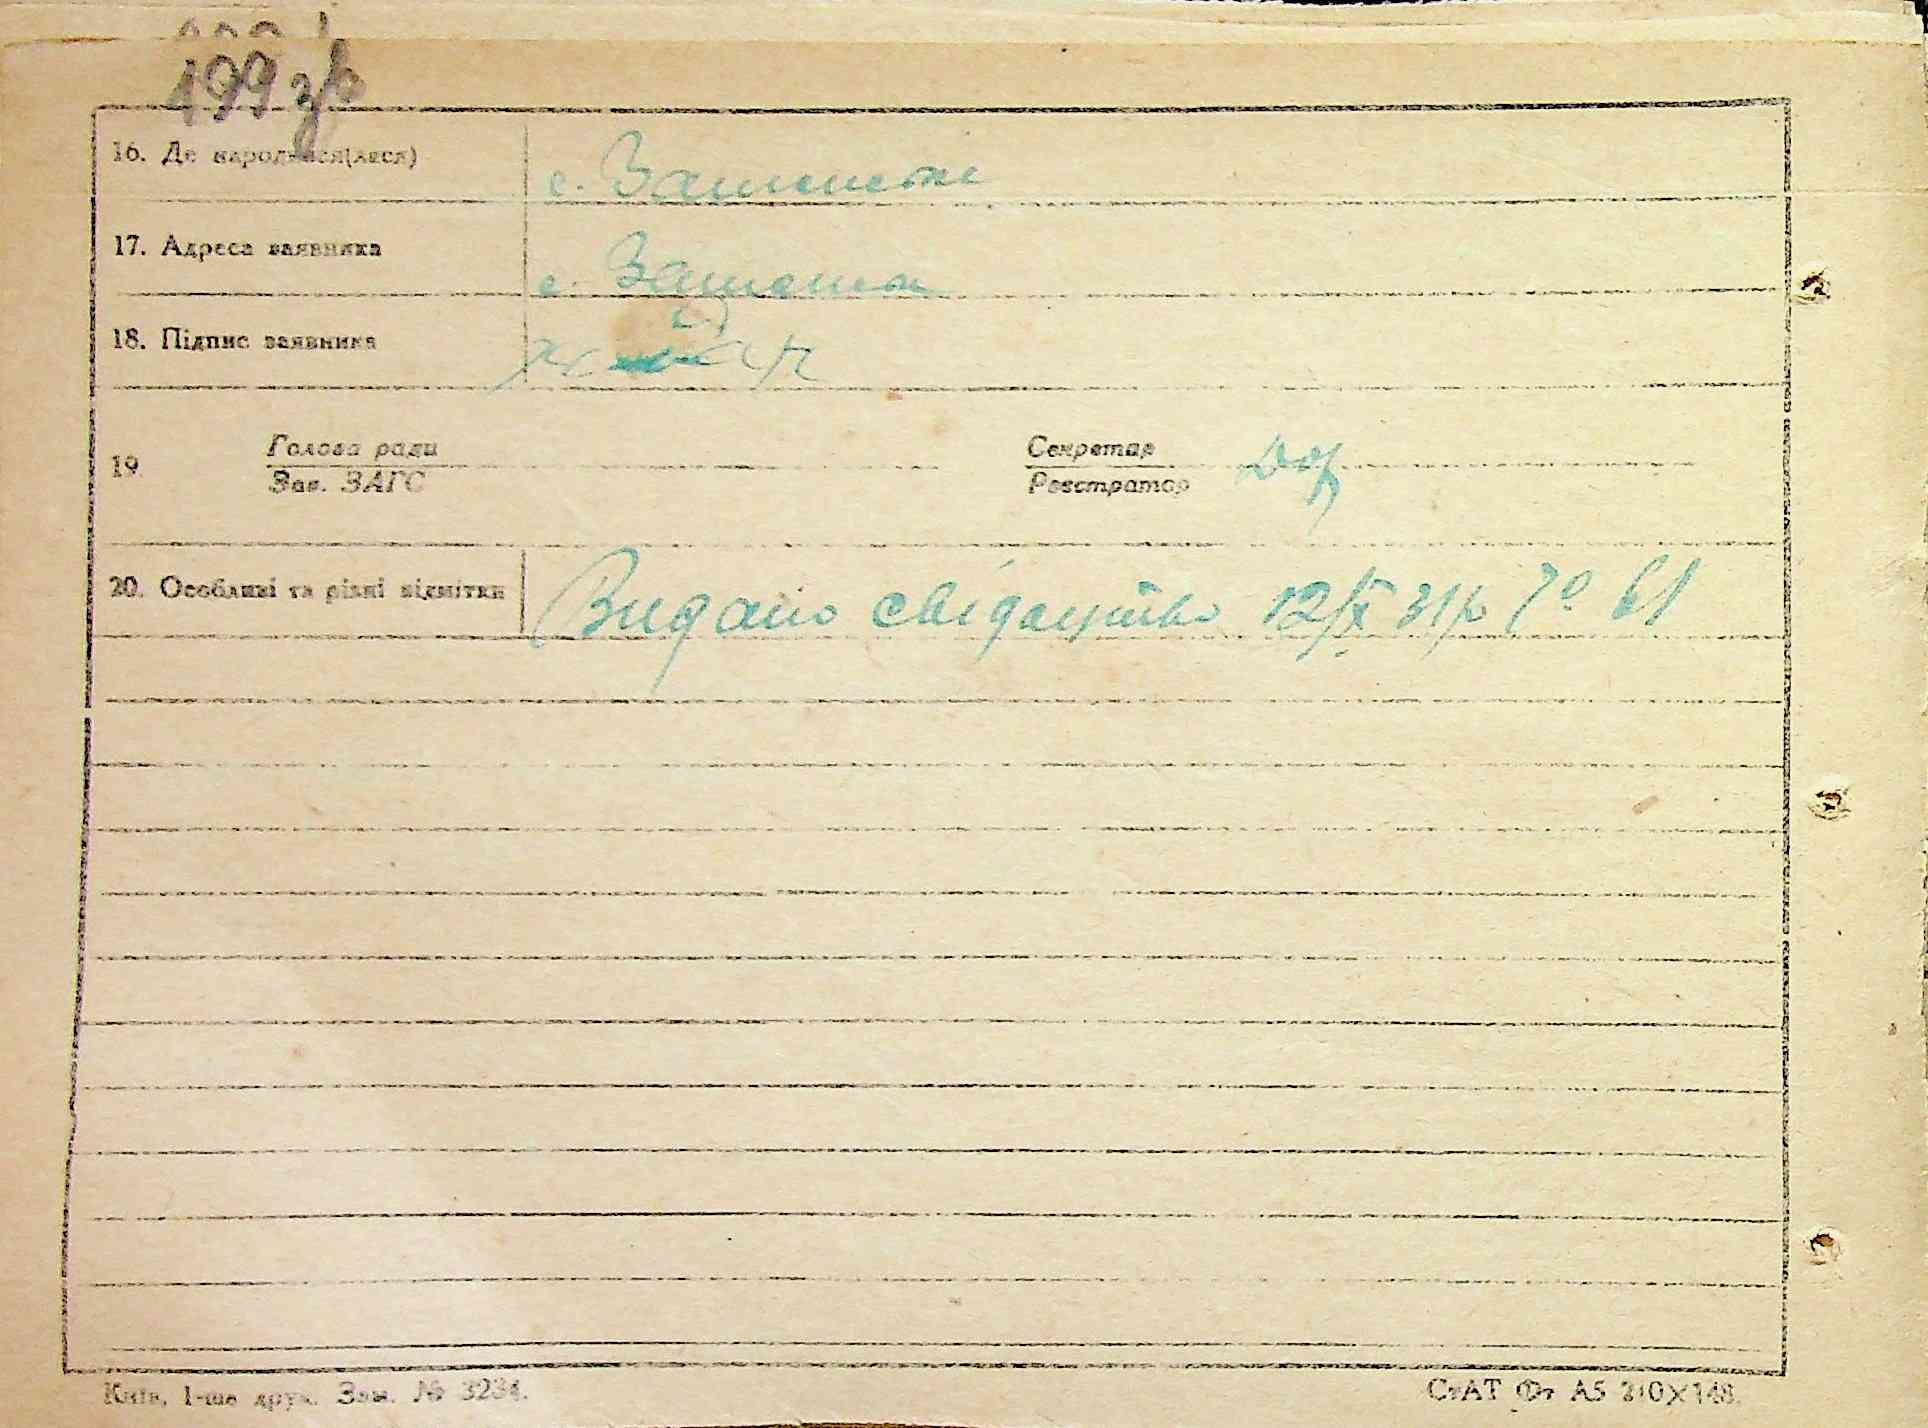 199 зв
16. Де народився(лася)
с.
17. Адреса заявника
с.
18. Підпис заявника
19. Голова ради Секретар
Зав. ЗАГС Реєстратор
20. Особливі та різні відмітки Видано свідоцтво 12/X 31 р № 61
Київ, 1-ше друк. Зам. № 3234. СтАТ Фт А5 210×148.